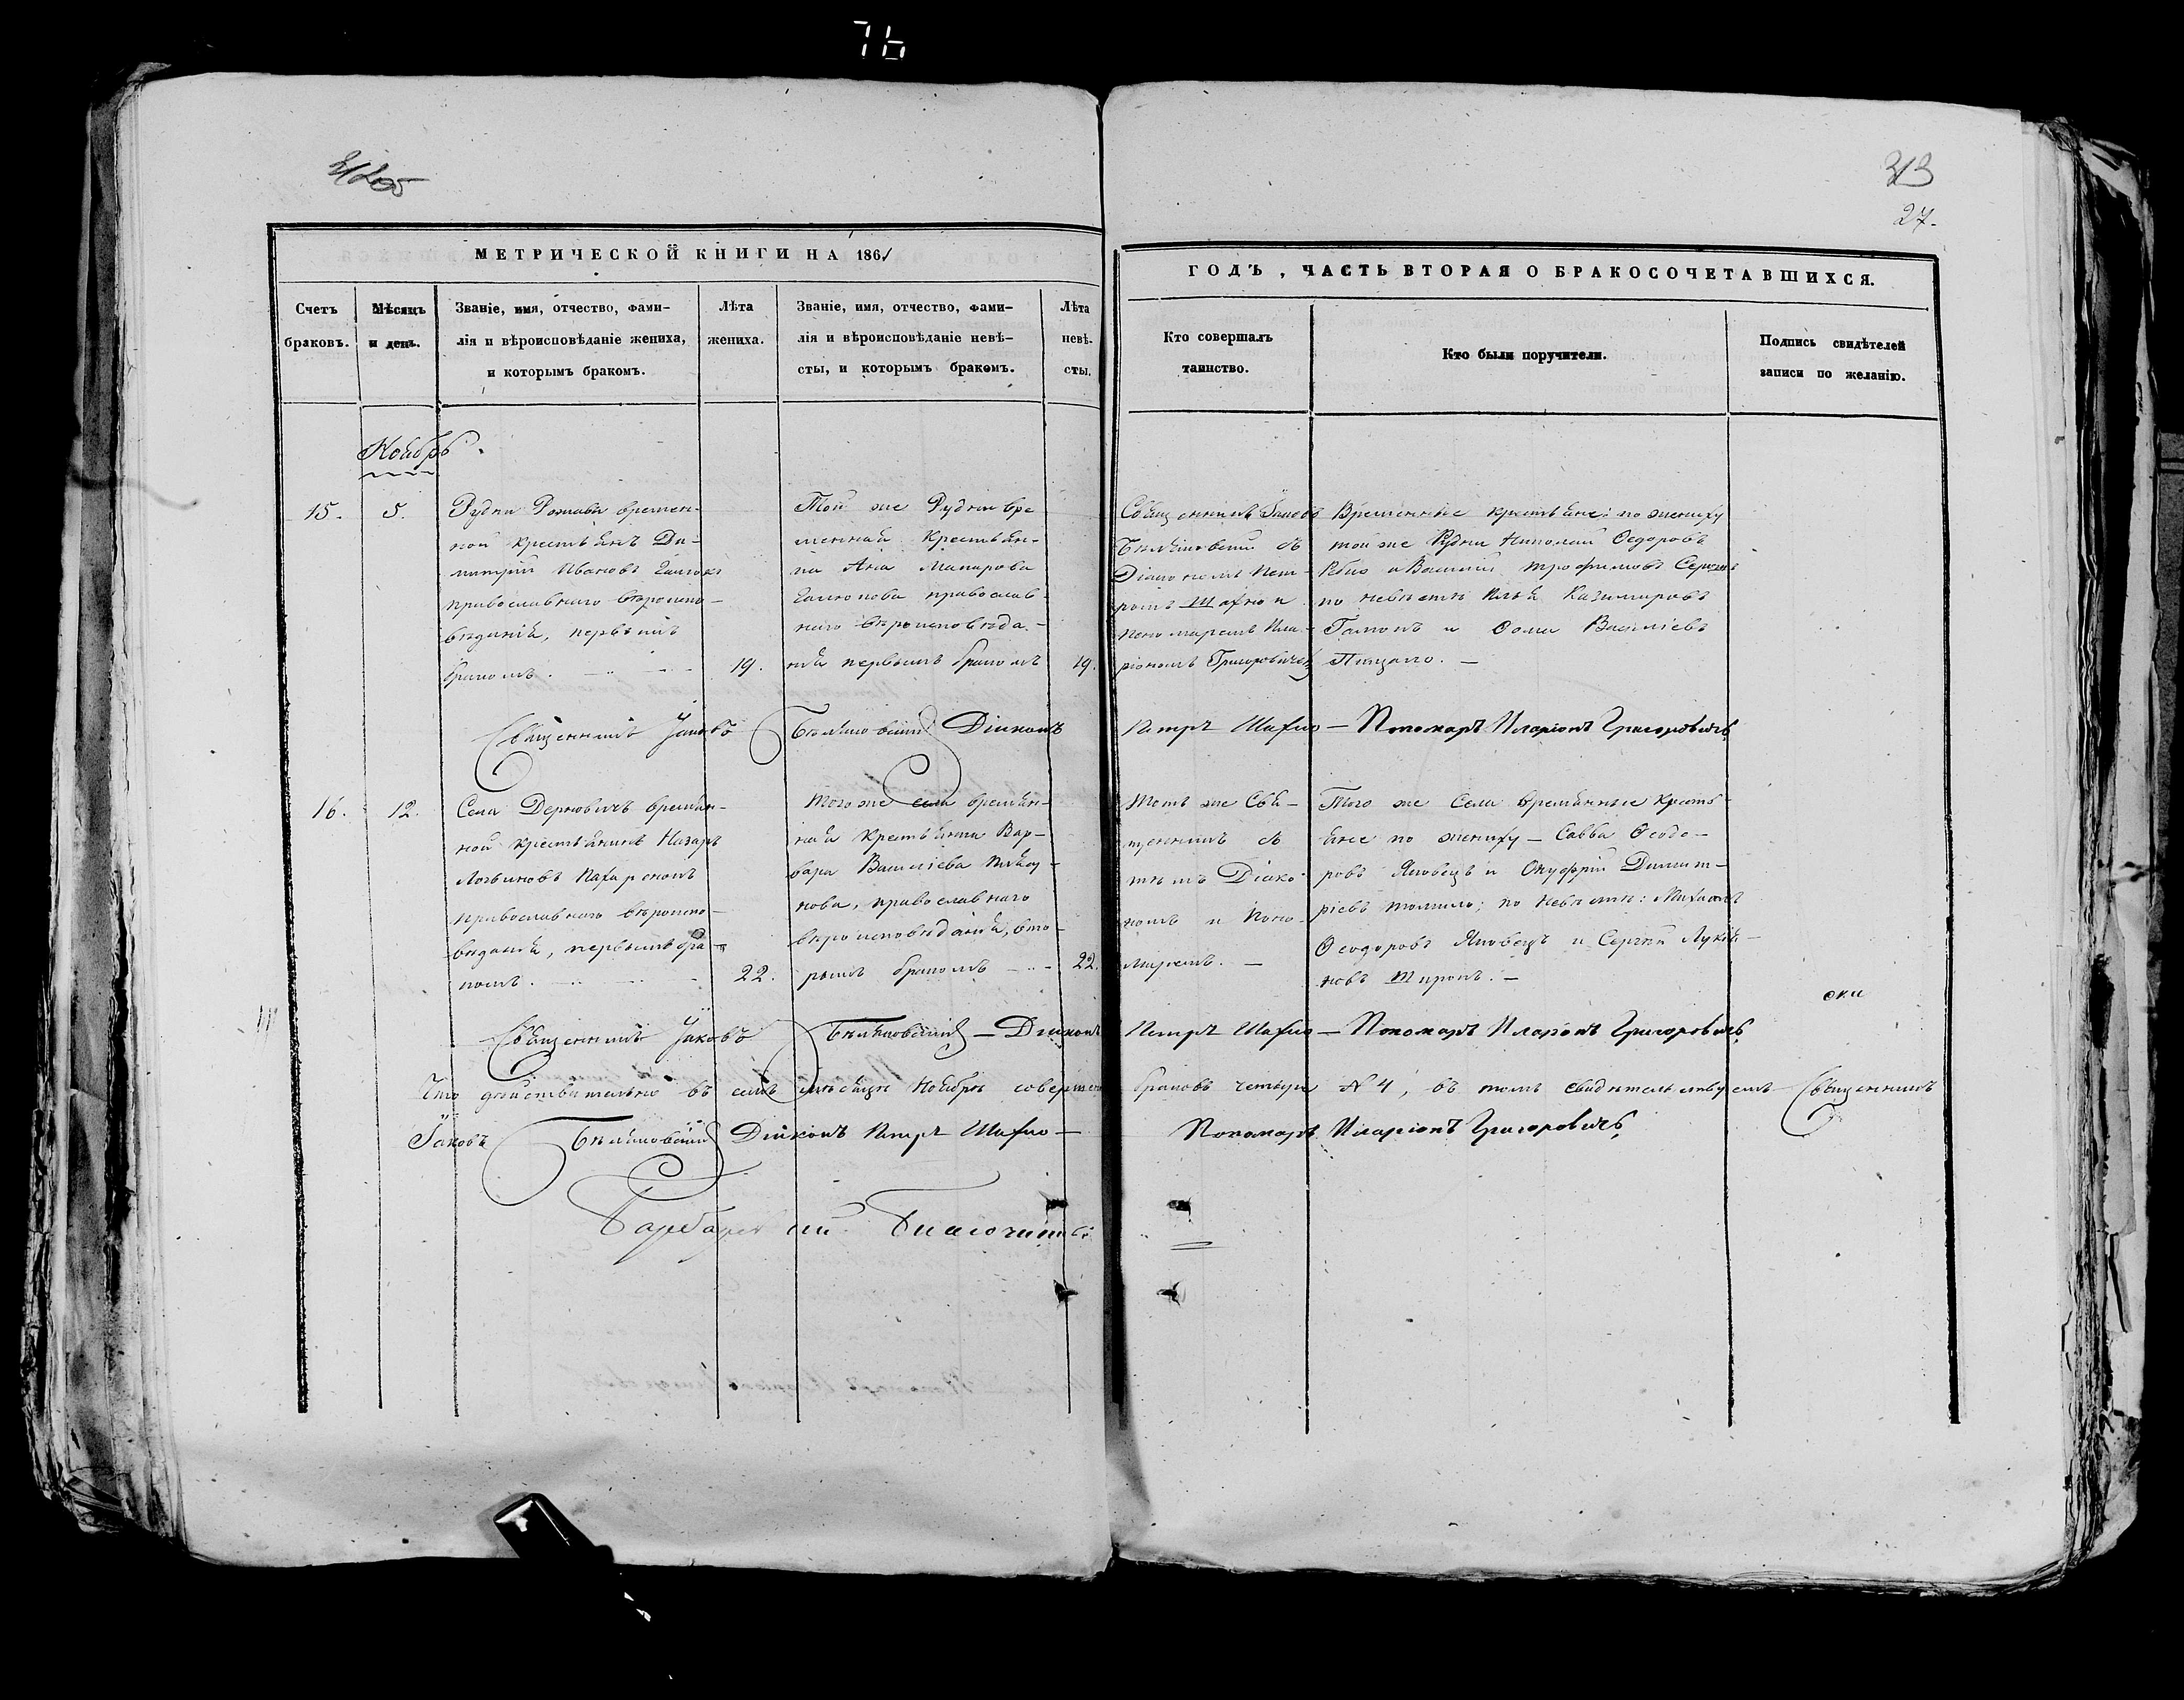 76
313
27.
МЕТРИЧЕСКОЙ КНИГИ НА 1861
ГОДЪ, ЧАСТЬ ВТОРАЯ О БРАКОСОЧЕТАВШИХСЯ.
Счетъ
браковъ.
Мѣсяцъ
и день.
Званіе, имя, отчество, фами-
лія и вѣроисповѣданіе жениха,
и которымъ бракомъ.
Лѣта
жениха.
Званіе, имя, отчество, фами-
лія и вѣроисповѣданіе невѣ-
сты, и которымъ бракомъ.
Лѣта
невѣ-
сты.
Кто совершалъ
таинство.
Кто были поручители.
Подпись свидѣтелей
записи по желанію.
Ноябрь.
15.
5.
Рудни времен-
ной крестьянъ Ди-
митрій Ивановъ
православнаго вѣроиспо-
вѣданія, первымъ
бракомъ.
19.
Той же Рудни вре
менная крестьян-
ка Ана Макарова
православ-
наго вѣроисповѣда-
нія первымъ бракомъ
19.
Священникъ Іаковъ
съ
Діакономъ Пет-
ромъ Шафно и
пономаремъ Ила-
ріономъ Григоровичемъ
Временные крестьяне: по жениху
той же Рудни Николай Ѳедоровъ
и Василій Трофимовъ
по невѣстѣ Илья Казимировъ
и Ѳома Василіевъ
Священникъ Іаковъ Діаконъ
Петръ Шафно — Пономарь Иларіонъ Григоровичъ
16.
12.
Села Дерновичъ времян-
ной крестьянинъ Назаръ
Логвиновъ
православнаго вѣроиспо-
вѣданія, первымъ бра-
комъ.
22.
Того же села времян-
ная крестьянка Вар-
вара Василіева
православнаго
вѣроисповѣданія, вто-
рымъ бракомъ
22.
Тотъ же Свя-
щенникъ съ
тѣмъ Діако-
номъ и Поно-
маремъ. —
Того же Села времянные кресть-
яне по жениху — Савва Ѳеодо-
ровъ Яковецъ и Онуфрій Димит-
ріевъ Томило; по невѣстѣ: Михаилъ
Ѳеодоровъ Яковецъ и Сергѣй Лукья-
новъ —
Священникъ Іаковъ — Діаконъ
Петръ Шафно — Пономарь Иларіонъ Григоровичъ
Что дѣйствительно въ семъ мѣсяцѣ Ноябрѣ совершено
браковъ четыре № 4, въ томъ свидѣтельствуемъ Священникъ
Іаковъ Діаконъ Петръ Шафно —
Пономарь Иларіонъ Григоровичъ